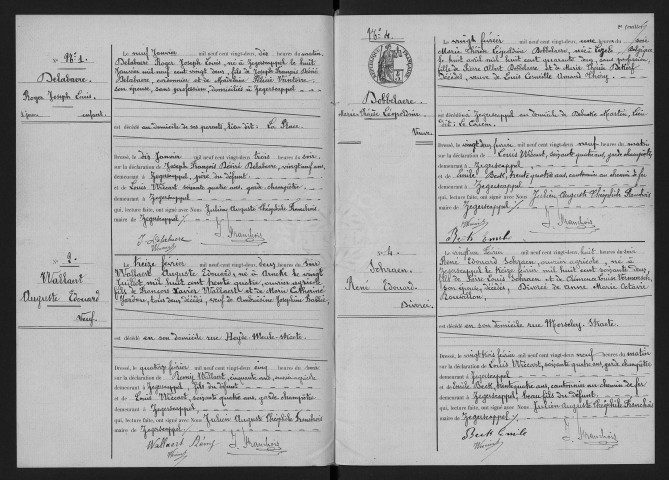 N° 1.
Delabaere
Roger Joseph Louis
enfant.
Le neuf Janvier mil neuf cent vingt-deux, dix heures du matin
Delabaere Roger Joseph Louis, né à Zegerscappel le huit
Janvier mil neuf cent vingt deux, fils de Joseph François Désiré
Delabaere, cordonnier et de Madeleine Marie
son épouse, sans profession, domiciliés à Zegerscappel
est décédé au domicile de ses parents, lieu dit: La Place.
Dressé, le dix Janvier mil neuf cent vingt-deux, trois heures du soir,
sur la déclaration de Joseph François Désiré Delabaere, vingt neuf ans,
demeurant à Zegerscappel, père du défunt
et de Louis Wécart, soixante quatre ans, garde champêtre
demeurant à Zegerscappel
qui, lecture faite, ont signé avec Nous Julien Auguste Théophile Franchois
maire de Zegerscappel
J. Delabaere
Wécart
J. Franchois
2.
Wallaert
Auguste Edouard
Veuf.
Le treize février mil neuf cent vingt-deux, heures du soir
Wallaert Auguste Edouard, né à Arneke le vingt
Juillet mil huit cent trente quatre, ouvrier agricole
fils de François Xavier Wallaert et de Marie Catherine
tous deux décédés, veuf de Joséphine
est décédé en son domicile rue Heyde-Meule-Straete
Dressé, le quatorze février mil neuf cent vingt-deux, cinq heures du soir
sur la déclaration de Rémy Wallaert, cinquante ans, ouvrier agricole
demeurant à Zegerscappel, fils du défunt
et de Louis Wécart, soixante quatre ans, garde champêtre
demeurant à Zegerscappel
qui, lecture faite, ont signé avec Nous Julien Auguste Théophile Franchois
maire de Zegerscappel
Wallaert Rémy
Wécart
J. Franchois
N° 3.
Bobbelaere
Marie Thérèse Léopoldine
Veuve
Le vingt février mil neuf cent vingt-deux, onze heures du soir
Marie Thérèse Léopoldine Bobbelaere, née à Belgique
le huit avril mil huit cent quarante deux, sans profession,
fille de Pierre Albert Bobbelaere et de Marie Thérèse
décédés, veuve de Louis Corneille Amand
est décédée à Zegerscappel au domicile de Martin, lieu
dit: Le
Dressé, le vingt un février mil neuf cent vingt-deux, neuf heures du matin
sur la déclaration de Louis Wécart, soixante quatre ans, garde champêtre
demeurant à Zegerscappel
et Emile Beck, trente quatre ans, cantonnier au chemin de fer
demeurant à Zegerscappel
qui, lecture faite, ont signé avec Nous Julien Auguste Théophile Franchois
maire de Zegerscappel
Wécart
Beck Emile
J. Franchois
N° 4
Schraen
René Edouard
Divorcé.
Le vingt un février mil neuf cent vingt-deux, huit heures du
René Edouard Schraen, ouvrier agricole, né à
Zegerscappel le treize février mil huit cent soixante deux,
fils de Pierre Louis Schraen et de
son épouse, décédés, Divorcé de Anne Marie
est décédé en son domicile rue Straete
Dressé, le vingt trois février mil neuf cent vingt-deux, neuf heures du matin
sur la déclaration de Louis Wécart, soixante quatre ans, garde champêtre
demeurant à Zegerscappel
et Emile Beck, trente quatre ans, cantonnier au chemin de fer
demeurant à Zegerscappel, beau fils du défunt
qui, lecture faite, ont signé avec Nous Julien Auguste Théophile Franchois
maire de Zegerscappel
Beck Emile
Wécart
J. Franchois